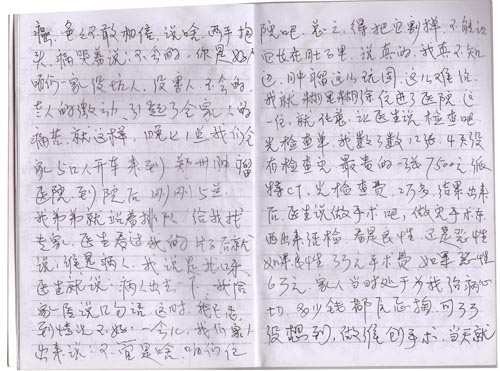 瘤，爸不敢相信说啥，两手抱
头，痛哭着说，不会的，你是好人
咱们一家没坏人，没害人，不会的
老人的激动，引起了全家人的
痛苦，就这样，晚上1点我们全
家5口人开车来到郑州肿瘤
医院，到院后刚刚5点，
我弟弟就站着排队，给我找
专家，医生看过我的片子后就
说，谁是病人，我说是我，
医生就说，病人出去一下，我给
家属说几句话，这时，我意
到情况不好，一会儿，我们家人
出来说，不管是啥，咱们住
院吧，总之，得把它割掉，不能让
它长在肚子里，说真的，我真不知
道，肿瘤这么顽固，这么难治，
我就糊里糊涂住进了医院，这
一住，就任意，让医生说检查吧，
光检查单，我数了数，12张，4天没
有检查完，最贵的一张7500元派
特CT，光检查费，2万多，结果出来
后，医生说做手术吧，做完手术，东
西出来化检，看是良性，还是恶性
如果良性，3万元手术费，如果恶性
6万元，家人当时处于为我治病心
切，多少钱都愿意掏，可万万
没想到，做住创手术，当天就